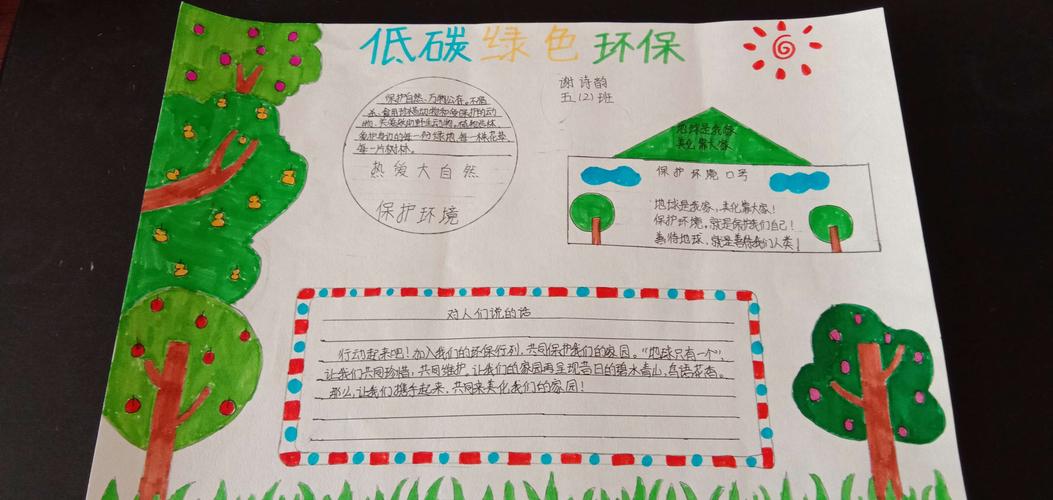 低碳绿色环保
谢诗韵
五(2)班
保护自然、万物公存。不猎
杀、食用珍稀动物和受保护的动
物、关爱我们野生动物。植树造林
爱护身边的每一份绿地、每一株花草
每一片树林。
热爱大自然
保护环境
地球是我家
美化靠大家
保护环境口号
地球是我家,美化靠大家!
保护环境,就是保护我们自己!
善待地球,就是善待我们人类!
对人们说的话
行动起来吧!加入我们的环保行列,共同保护我们的家园。“地球只有一个”,
让我们共同珍惜,共同维护,让我们的家园再呈现昔日的碧水青山,鸟语花香。
那么,让我们携手起来,共同来美化我们的家园!